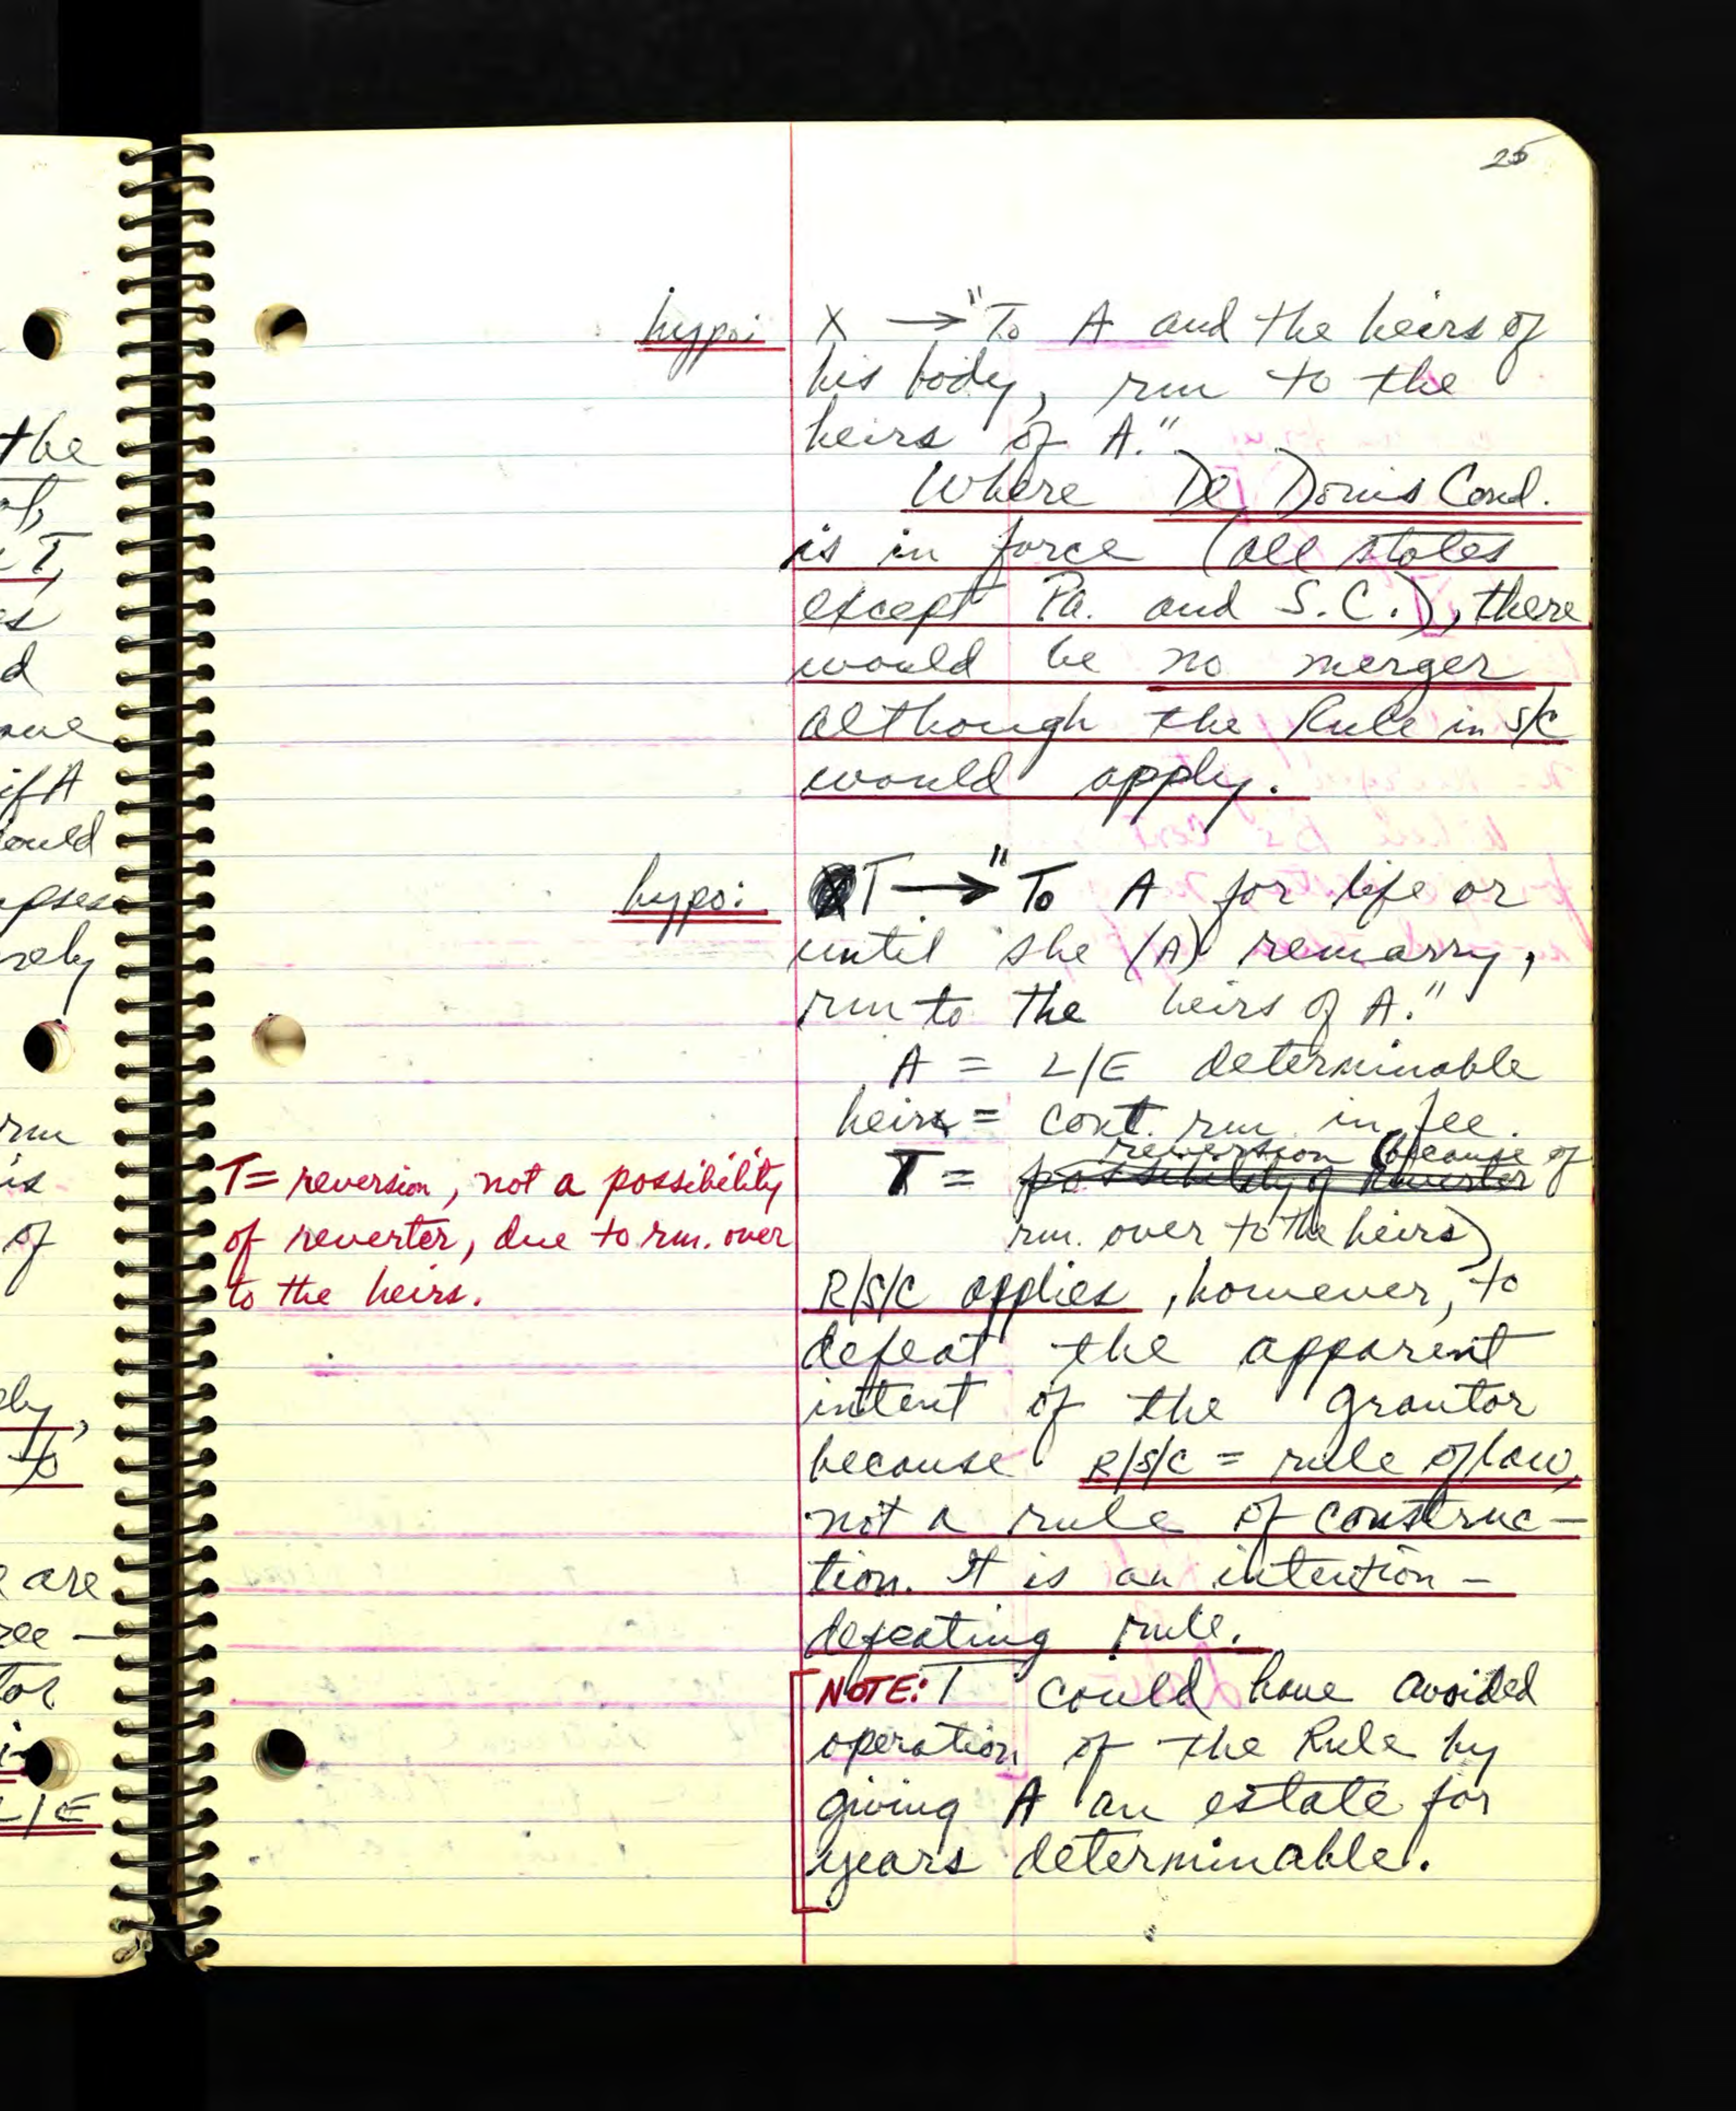 25
hypo: X → "To A and the heirs of
his body, rm to the
heirs of A."
Where De Donis Cond.
is in force (all states
except Pa. and S.C.), there
would be no merger
although the Rule in S/C
would apply.
hypo: T → "To A for life or
until she (A) remarry,
rm to the heirs of A."
A = L/E determinable
heirs = cont. rm in fee.
T = possibility of reverter reversion (because of
rm. over to the heirs)
T = reversion, not a possibility
of reverter, due to rm. over
to the heirs.
R/S/C applies, however, to
defeat the apparent
intent of the grantor
because R/S/C = rule of law,
not a rule of construc-
tion. It is an intention-
defeating rule.
NOTE: T could have avoided
operation of the Rule by
giving A an estate for
years determinable.
the
T,
d
if A
ould
pses
rely
rm
is
of
ely,
to
are
ee —
tor
L/E